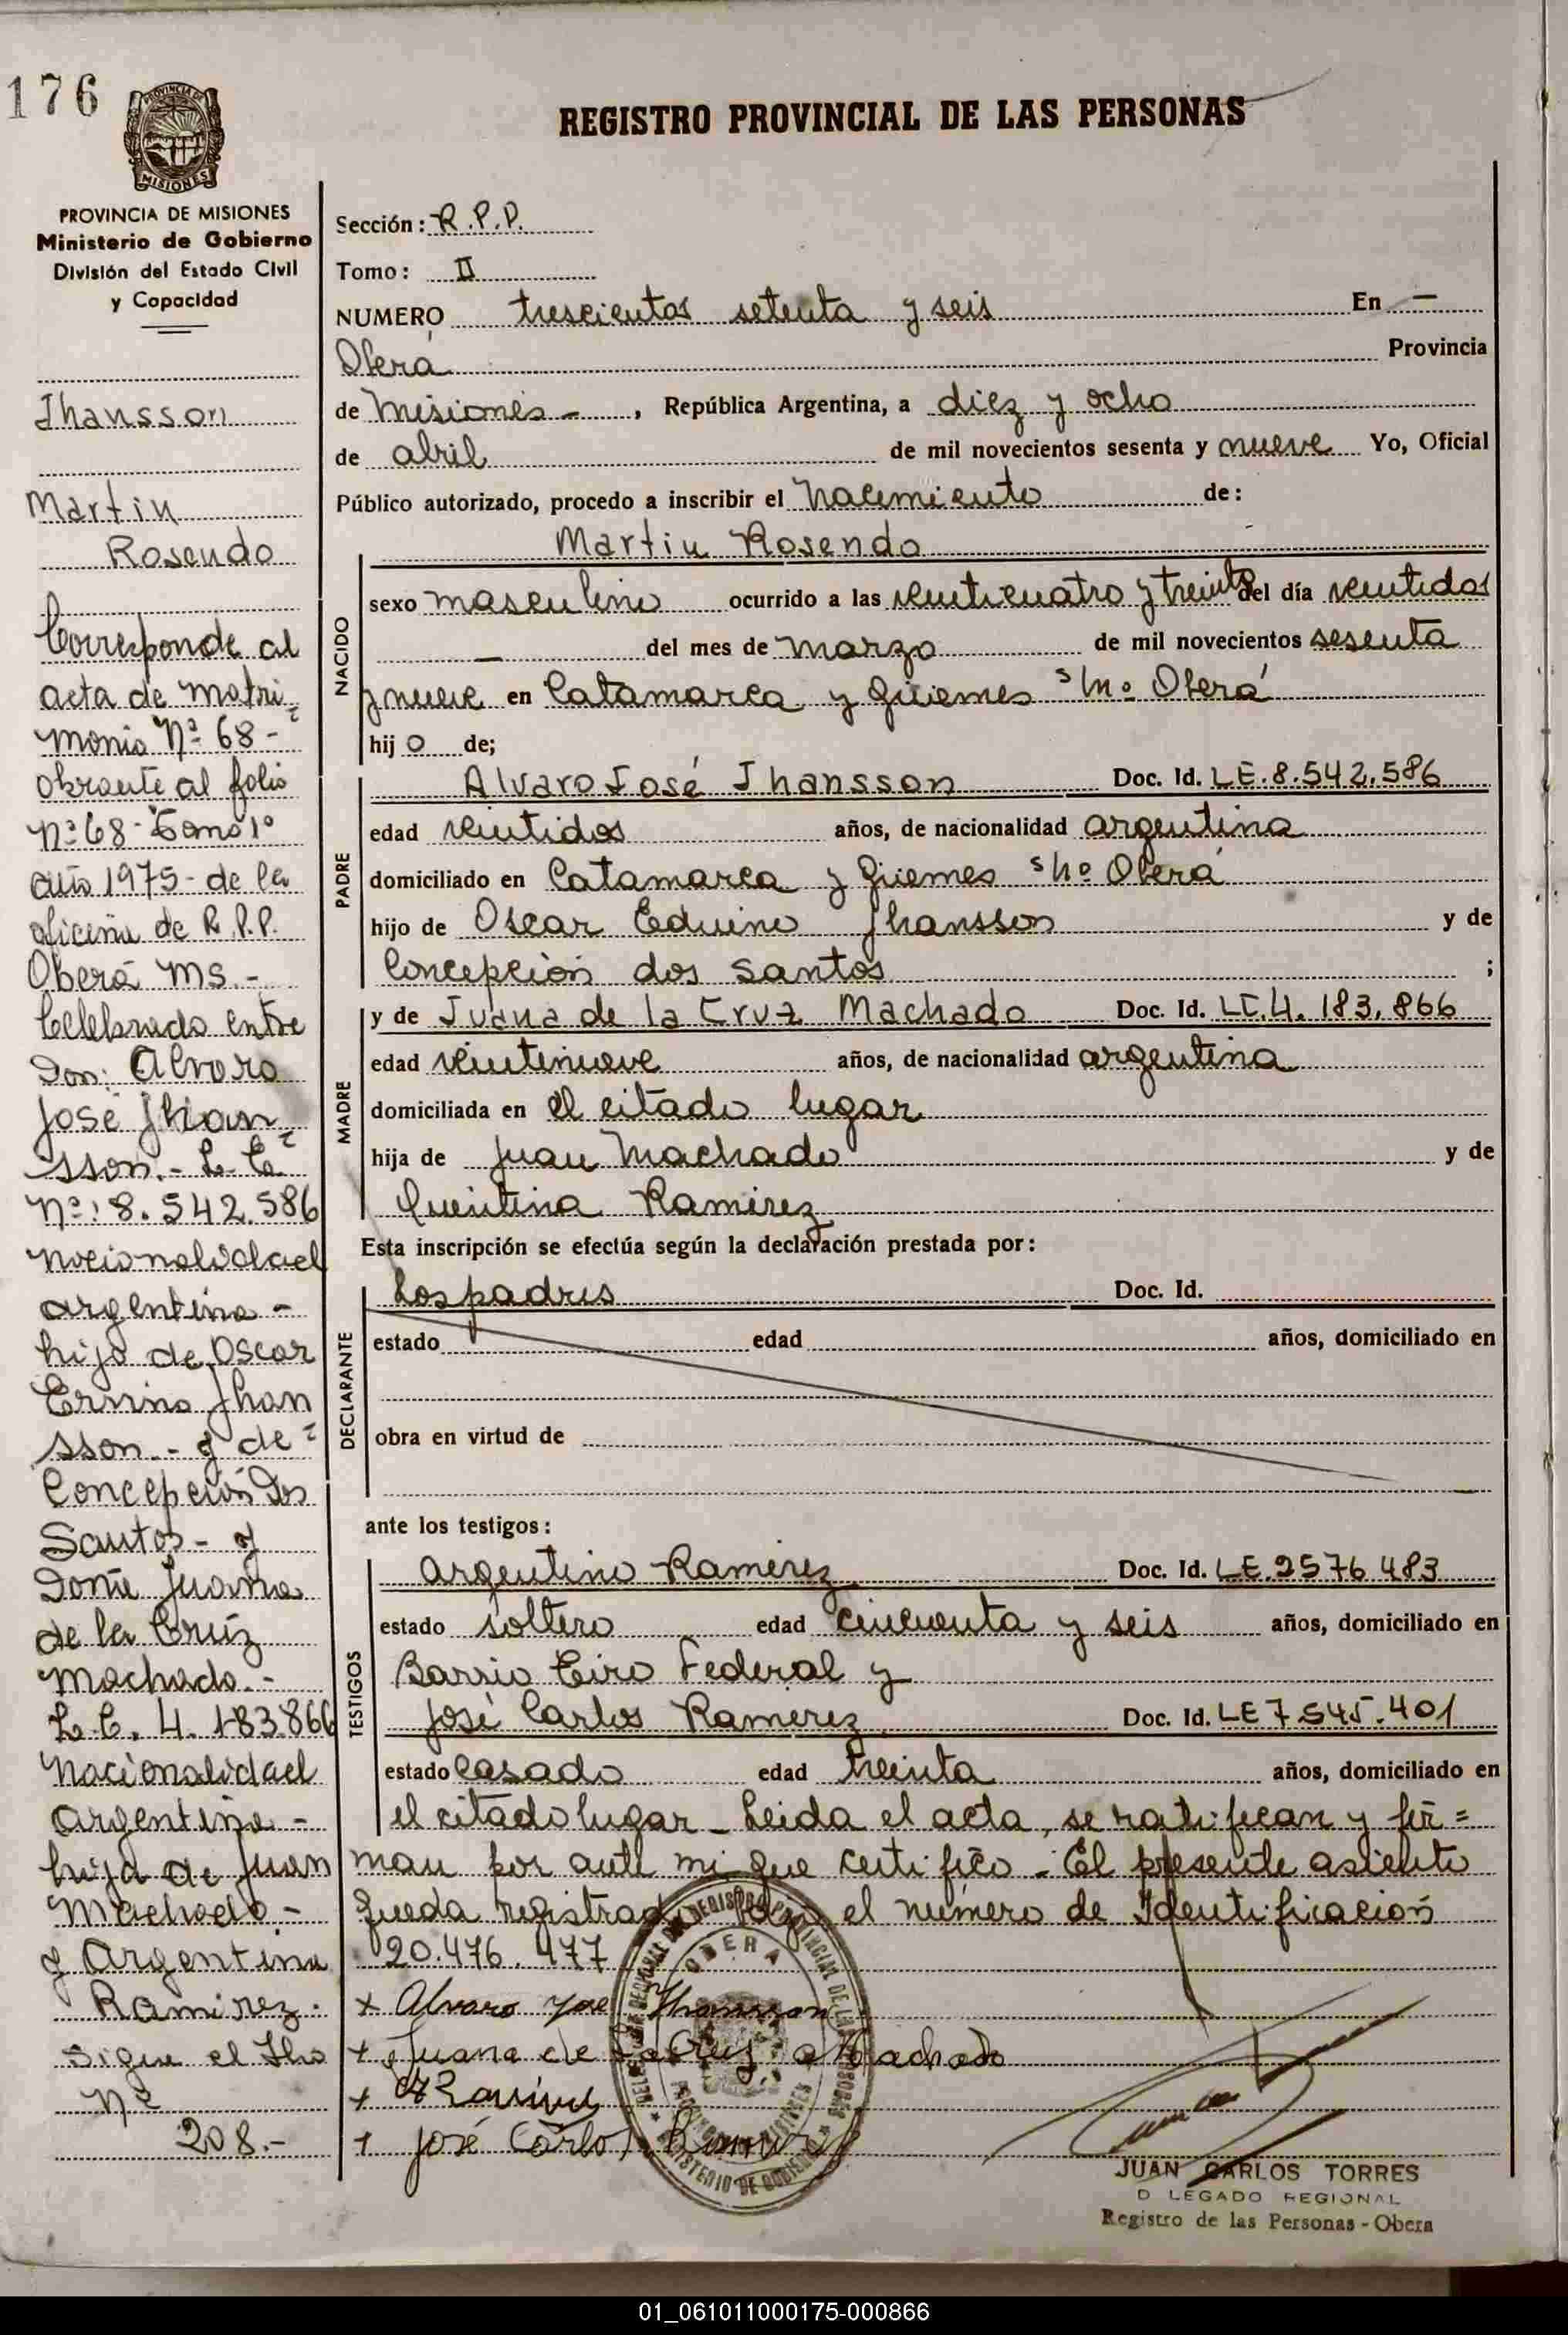 176
PROVINCIA DE MISIONES
REGISTRO PROVINCIAL DE LAS PERSONAS
PROVINCIA DE MISIONES
Ministerio de Gobierno
División del Estado Civil
y Capacidad
Jhansson
Martin
Rosendo
Corresponde al
acta de matri=
monio Nº 68 -
obrante al folio
Nº 68 - Tomo 1º
año 1975 - de la
oficina de R.P.P.
Oberá Ms. -
Celebrado entre
Don: Alvaro
José Jhan=
sson. - L. E.
Nº: 8.542.586
nacionalidad
argentina -
hijo de Oscar
Ervino Jhan=
sson. - y de
Concepción Dos
Santos - y
Doña Juana
de la Cruz
Machado. -
L.C. 4.183.866
nacionalidad
argentina -
hija de Juan
Machado -
y Argentina
Ramirez.
Sigue el Fho
Nº
208.-
Sección: R.P.P.
Tomo: II
NUMERO trescientos setenta y seis En —
Oberá Provincia
de Misiones - , República Argentina, a diez y ocho
de abril de mil novecientos sesenta y nueve Yo, Oficial
Público autorizado, procedo a inscribir el nacimiento de:
Martin Rosendo
NACIDO
sexo masculino ocurrido a las veinticuatro y treinta del día veintidos
— del mes de marzo de mil novecientos sesenta
y nueve en Catamarca y Güemes s/nº Oberá
hijo de;
PADRE
Alvaro José Jhansson Doc. Id. LE.8.542.586
edad veintidos años, de nacionalidad argentina
domiciliado en Catamarca y Güemes s/nº Oberá
hijo de Oscar Eduino Jhansson y de
Concepción dos Santos ;
MADRE
y de Juana de la Cruz Machado Doc. Id. LC.4.183.866
edad veintinueve años, de nacionalidad argentina
domiciliada en el citado lugar
hija de Juan Machado y de
Ramirez
Esta inscripción se efectúa según la declaración prestada por:
DECLARANTE
Los padres Doc. Id.
estado edad años, domiciliado en
obra en virtud de
ante los testigos:
TESTIGOS
Argentino Ramirez Doc. Id. LE.2576.483
estado soltero edad cincuenta y seis años, domiciliado en
Barrio Tiro Federal y
José Carlos Ramirez Doc. Id. LE 7.545.401
estado casado edad treinta años, domiciliado en
el citado lugar - Leida el acta, se ratifican y fir=
man por ante mi que certifico - El presente asiento
queda registrado bajo el número de Identificación
20.476.477
x Alvaro Jose Jhansson
x Juana de la Cruz Machado
x
x José Carlos Ramirez
OBERA
JUAN CARLOS TORRES
D LEGADO REGIONAL
Registro de las Personas - Obera
01_061011000175-000866